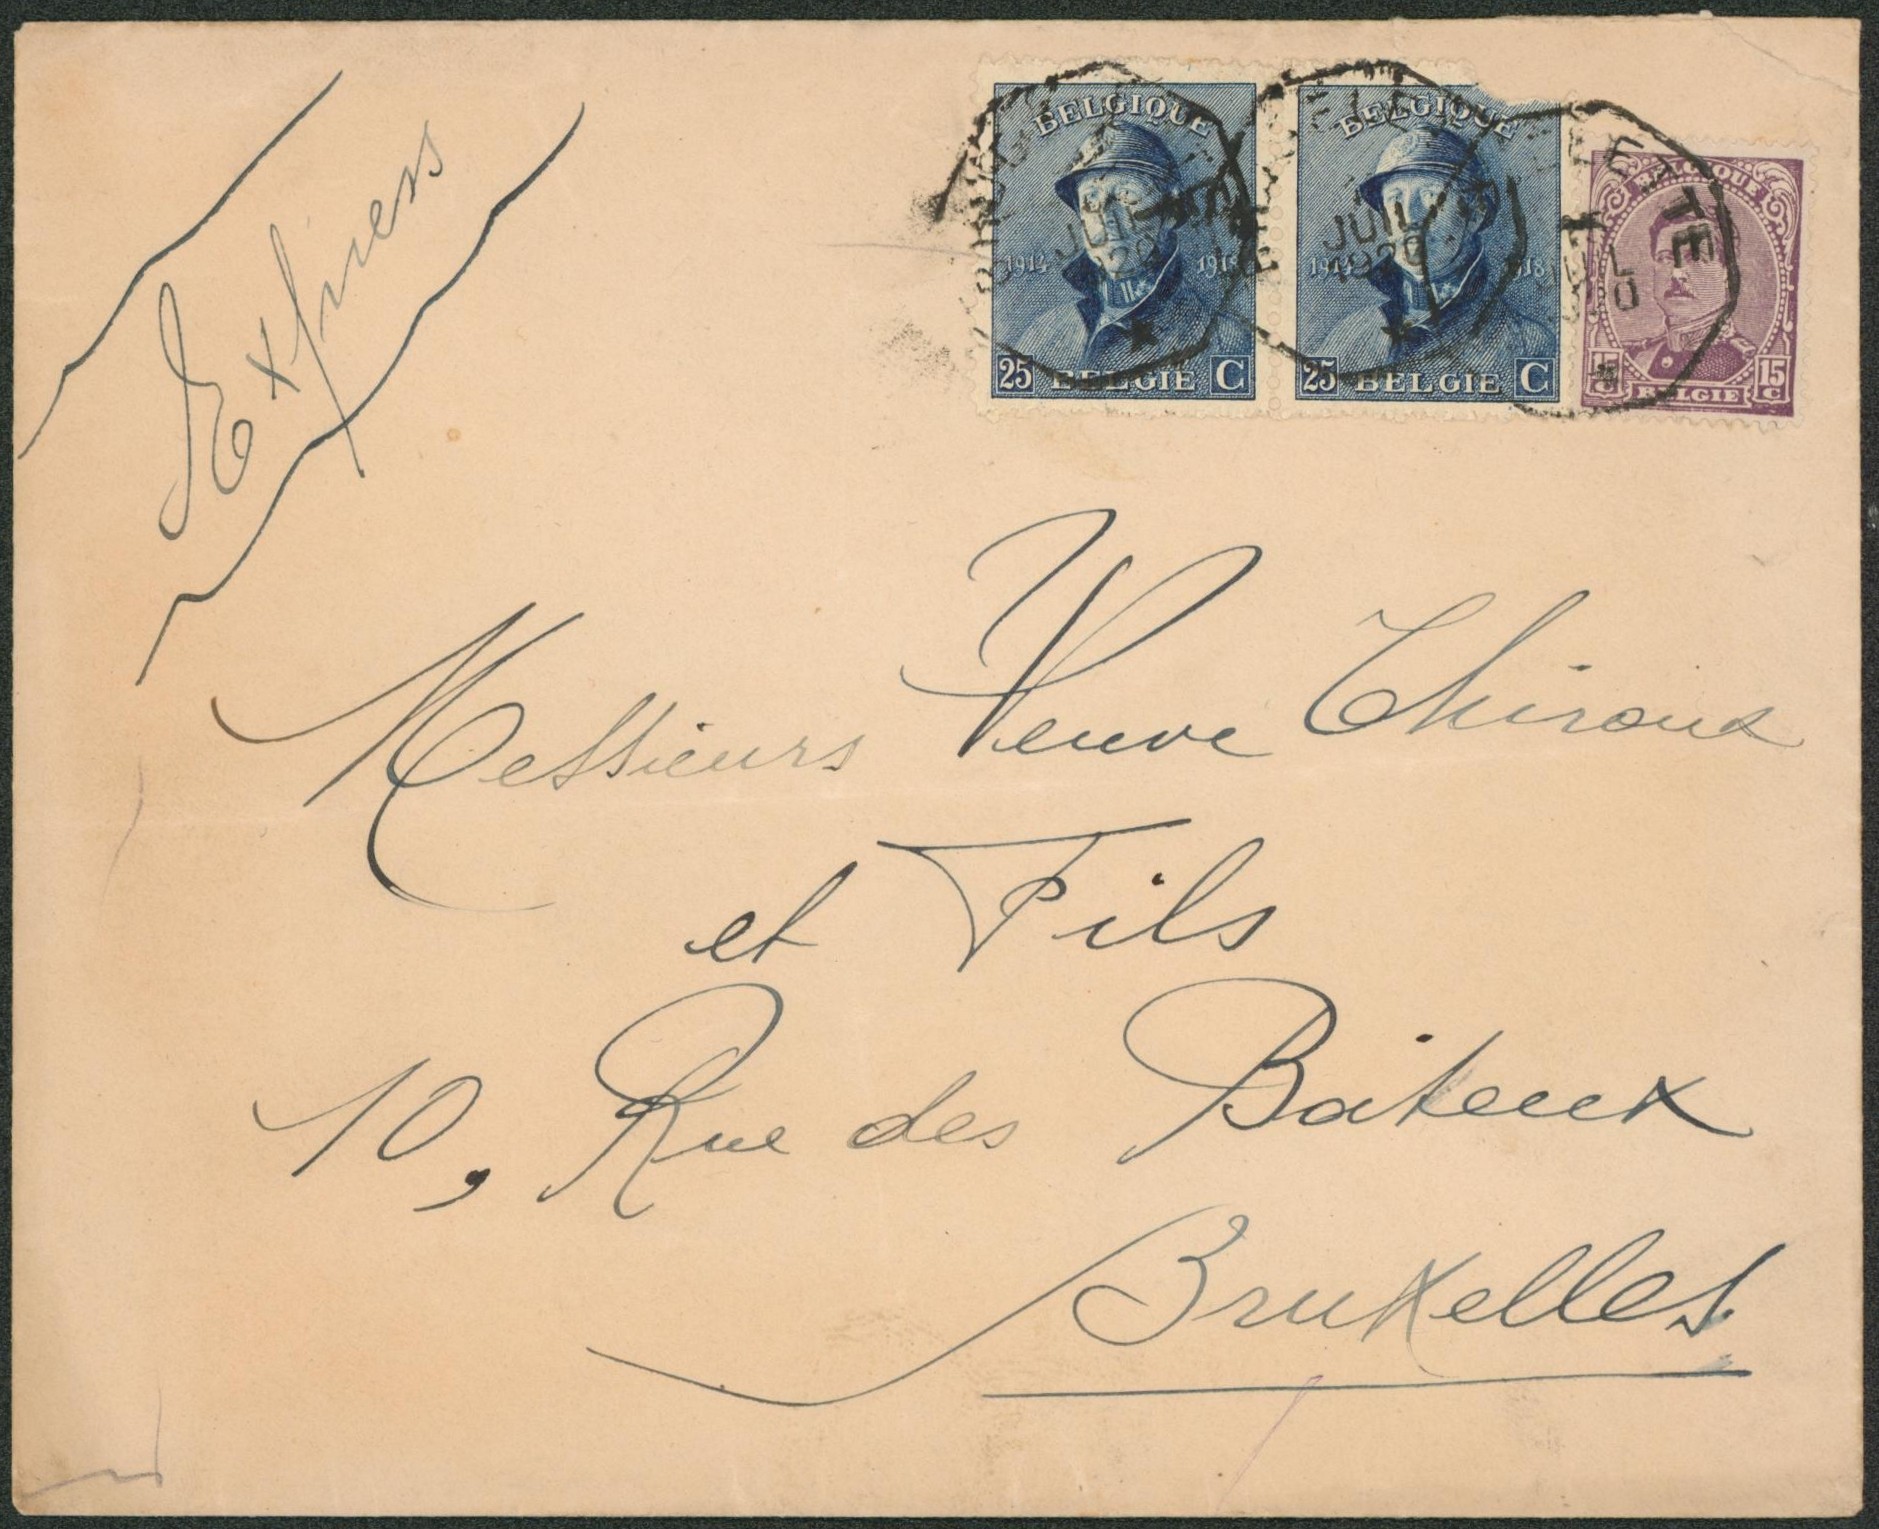 Express
BELGIQUE
1914 1918
25 BELGIE C
BELGIQUE
1914 1918
25 BELGIE C
BELGIQUE
15 15
C BELGIE C
JUIL
1920
Messieurs Veuve Thiroux
et Fils
10, Rue des Bateux
Bruxelles